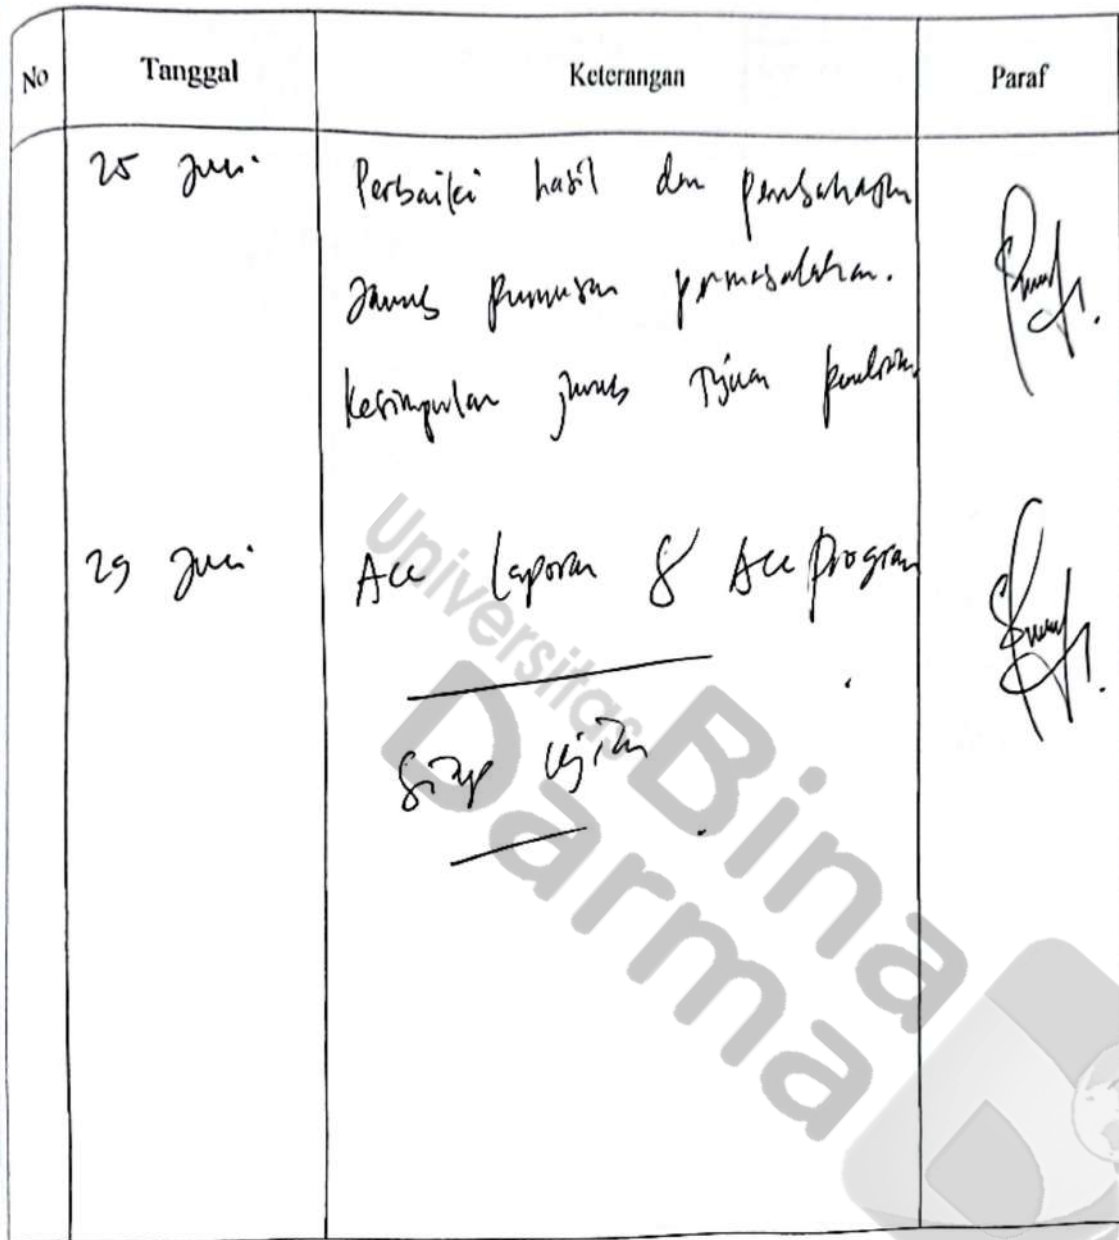 No Tanggal Keterangan Paraf
25 Juni Perbaiki hasil dan pembahasan
Jawab rumusan permasalahan.
Kesimpulan jawab Tujuan penelitian
29 Juni Acc laporan & Acc program
Siap ujian.
Universitas
Bina
Darma